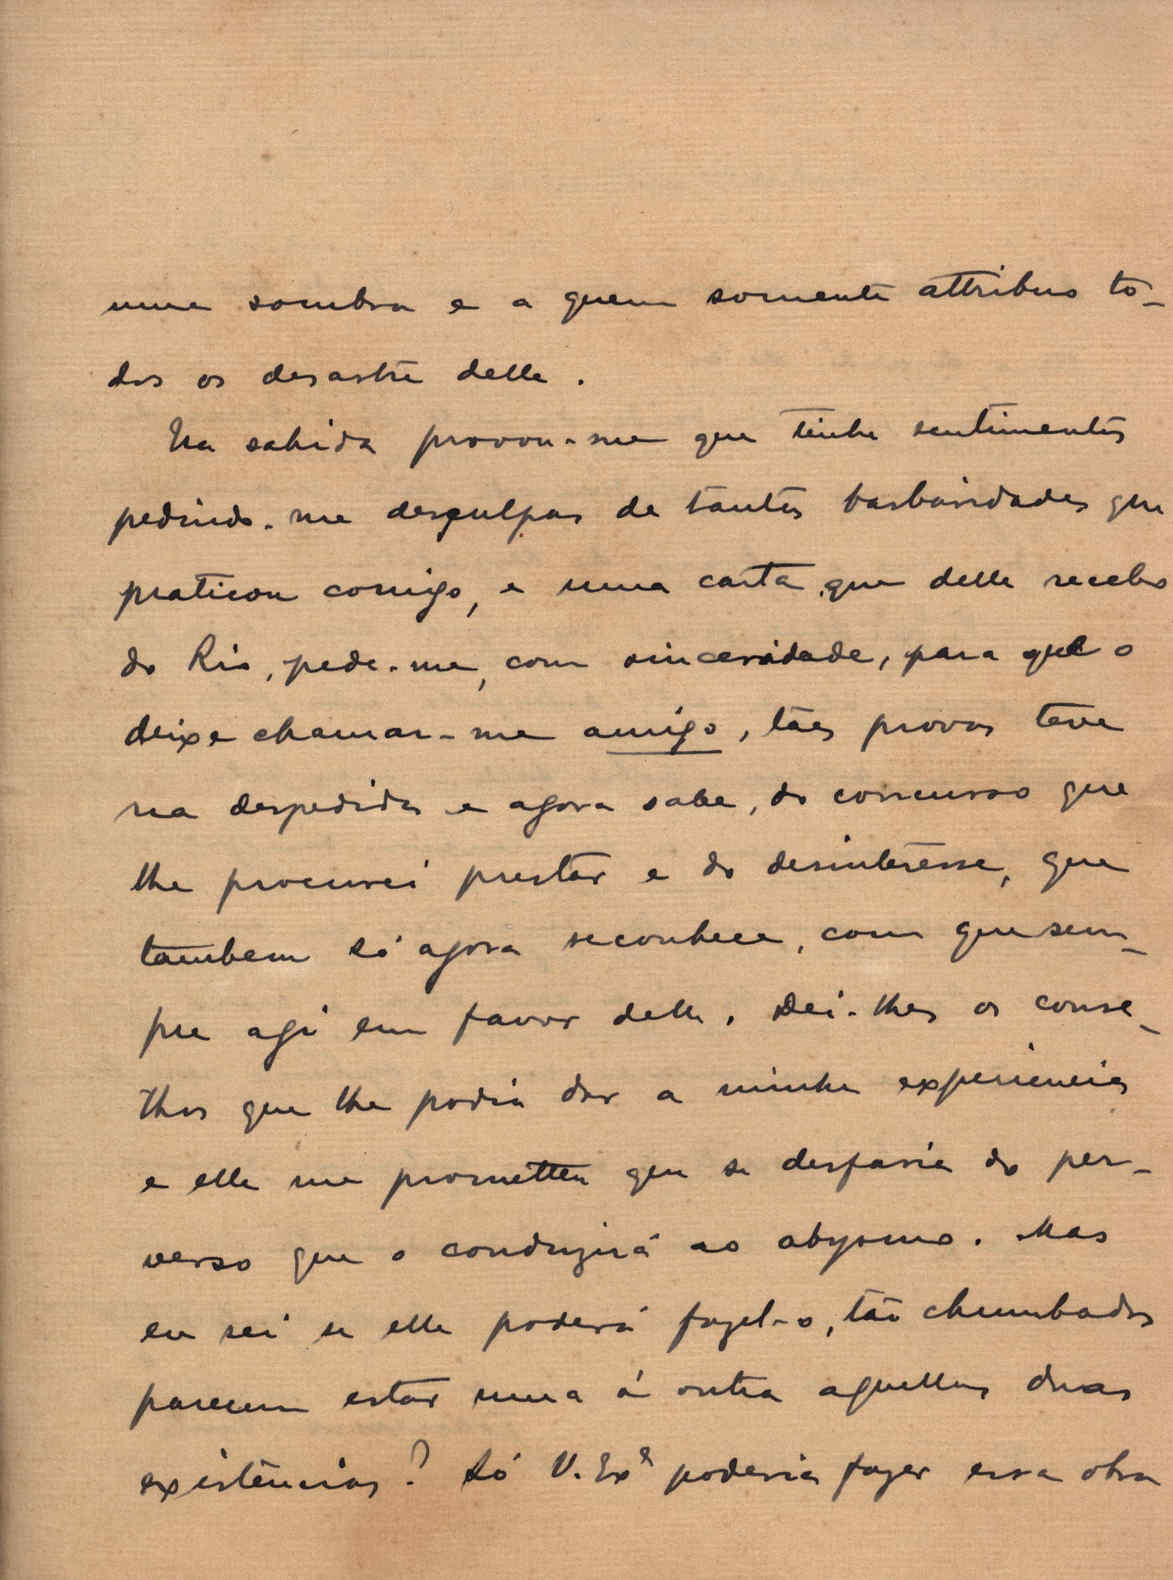 uma sombra e a quem somente attribuo to-
dos os desastre delle.
Na sahida provou-me que tinha sentimentos
pedindo-me desculpas de tantas barbaridades que
praticou comigo, e uma carta que delle recebo
do Rio, pede-me, com sinceridade, para que o
deixe chamar-me amigo, tães provas teve
na despedida e agora sabe, do concurso que
lhe procurei prestar e do desinteresse, que
tambem só agora reconhece, com que sem-
pre agi em favor delle. Dei-lhes os conse-
lhos que lhe podia dar a minha experiencia
e elle me prometteu que se desfaria do per-
verso que o conduzirá ao abysmo. Mas
eu sei se elle poderá fazel-o, tão chumbadas
parecem estar uma á outra aquellas duas
existências? Só V. Exª poderia fazer essa obra